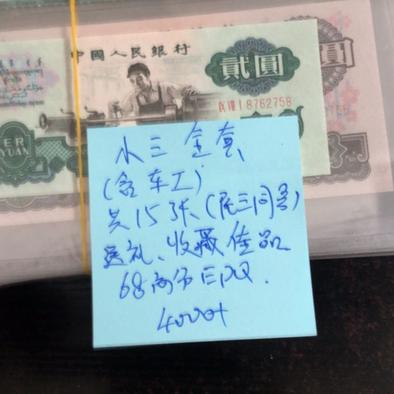 中國人民銀行
貳圓
I 8762758
ER
YUAN
小三全套
(含车工)
共15张(尾三同号)
送礼、收藏佳品
68高分EPQ.
4000+